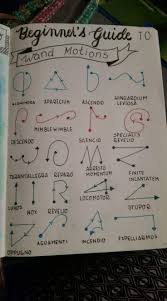 Beginner's Guide TO
Wand Motions
ALOHOMORA APARECIUM ASCENDIO WINGARDIUM LEVIOSA
DESCENDO NIMBLEWIMBLE SILENCIO SPECIALIS REVELIO
TARANTALLEGRA REPARO ARRESTO MOMENTUM FINITE INCANTATEM
LUMOS NOX REVELIO LOCOMOTOR STUPOR
OPPUGNO AGUAMENTI INCENDIO EXPELLIARMUS